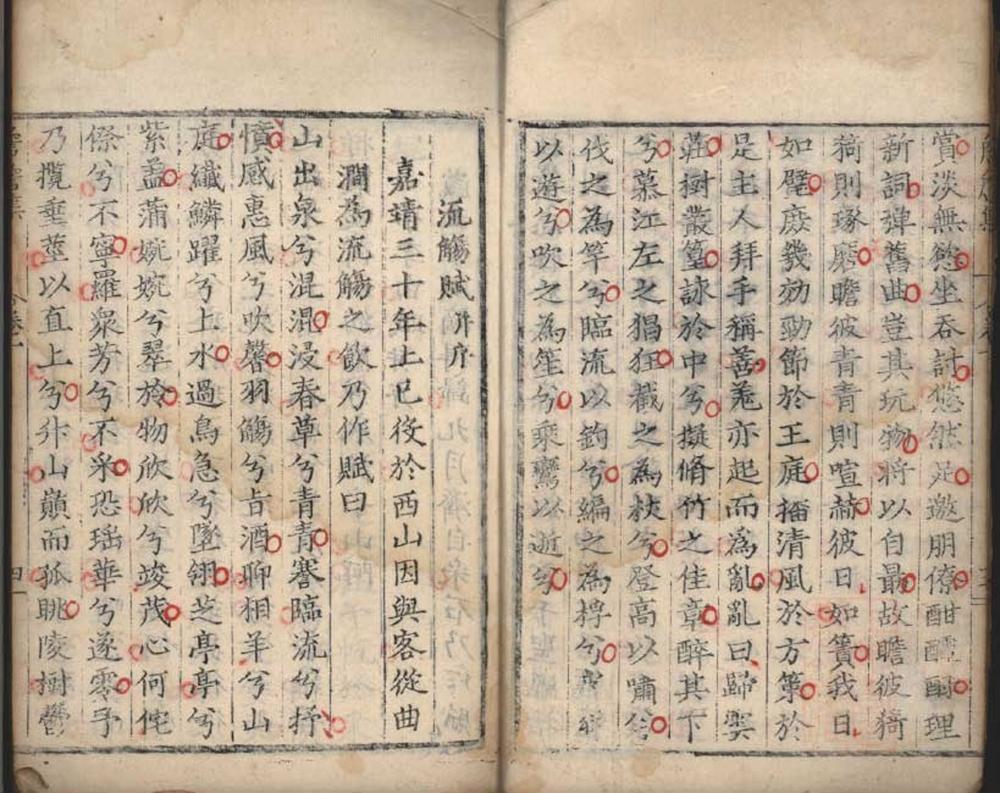 賞淡無慾坐吞詩悠然足邀朋僚酣醲酬理
新詞弹舊曲豈其玩物將以自最故瞻彼猗
猗則琢磨瞻彼青青則喧赫彼日如簀我日
如璧庶幾効勁節於王庭播清風於方策於
是主人拜手稱善羗亦起而為亂亂曰歸與
莊樹叢篁詠於中兮擬脩竹之佳章醉其下
兮慕江左之猖狂截之為杖兮登高以嘯
伐之為竿兮臨流以釣兮編之為桴兮
以遊兮吹之為笙兮乘鸞以逝兮
流觴賦并序
嘉靖三十年上巳役於西山因與客從曲
澗為流觴之飲乃作賦曰
山出泉兮混混浸春草兮青青蹇臨流兮抒
憤感惠風兮吹馨羽觴兮旨酒聊相羊兮山
庭纖鱗躍兮上水過鳥急兮墜翎芝亭亭兮
紫盖蒲婉婉兮翠於物欣欣兮竣茂心何侘
傺兮不寧羅衆芳兮不采恐瑶華兮遂零予
乃攬垂莖以直上兮升山巔而孤眺陵樹鬱
四